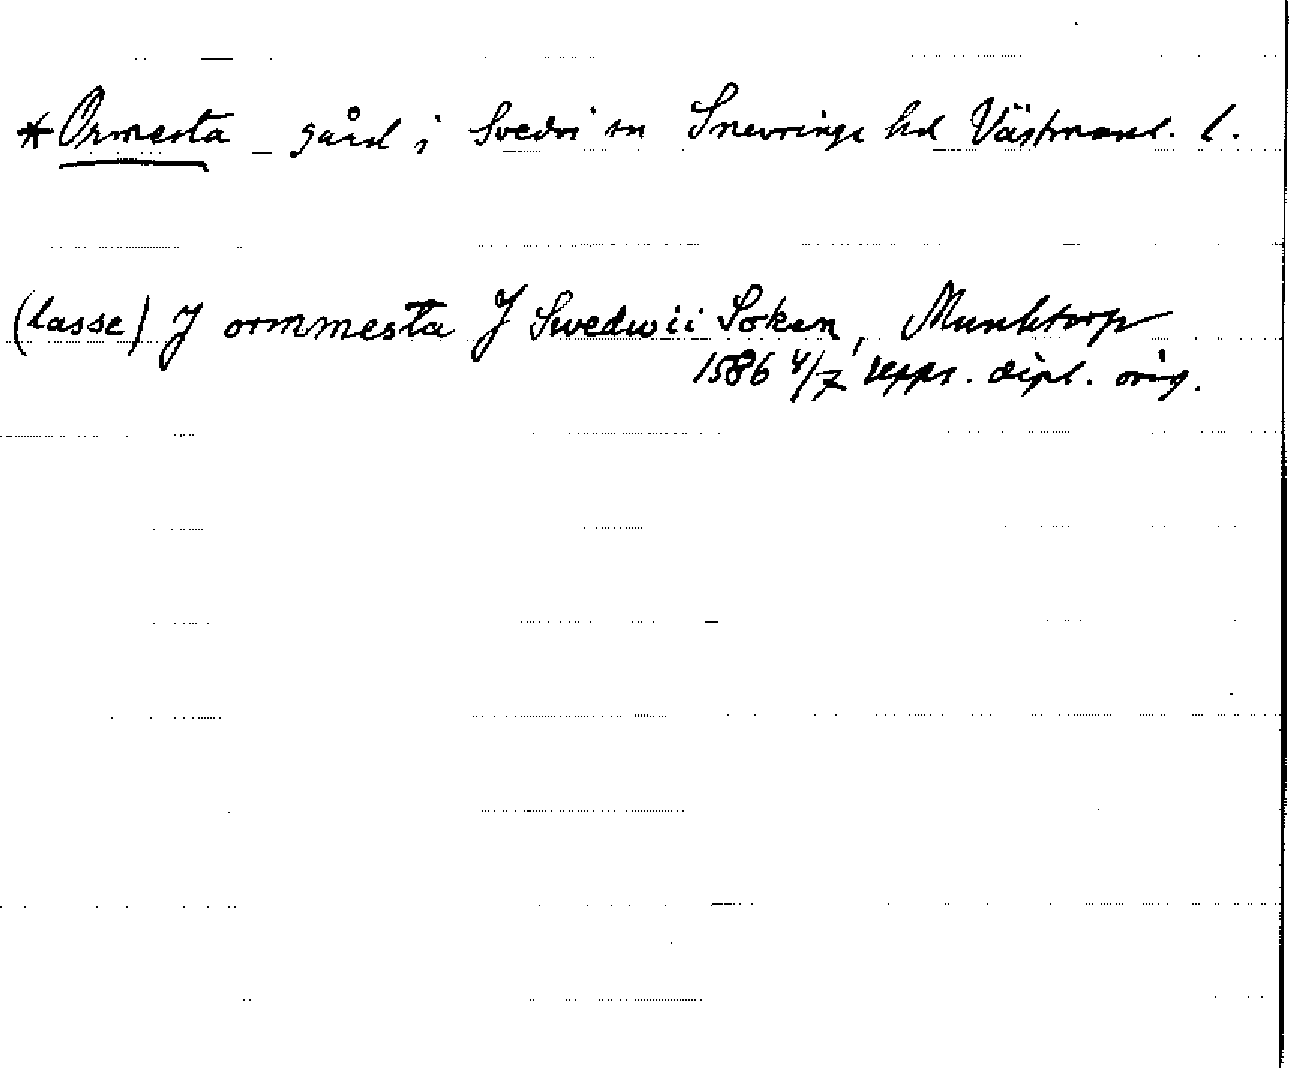 *Ormesta _ gård i Svedvi sn Snevringe hd Västmanl. l.
(lasse) J ormmesta J Swedwii Soken, Munktorp
1586 4/7 Upps. dipl. orig.